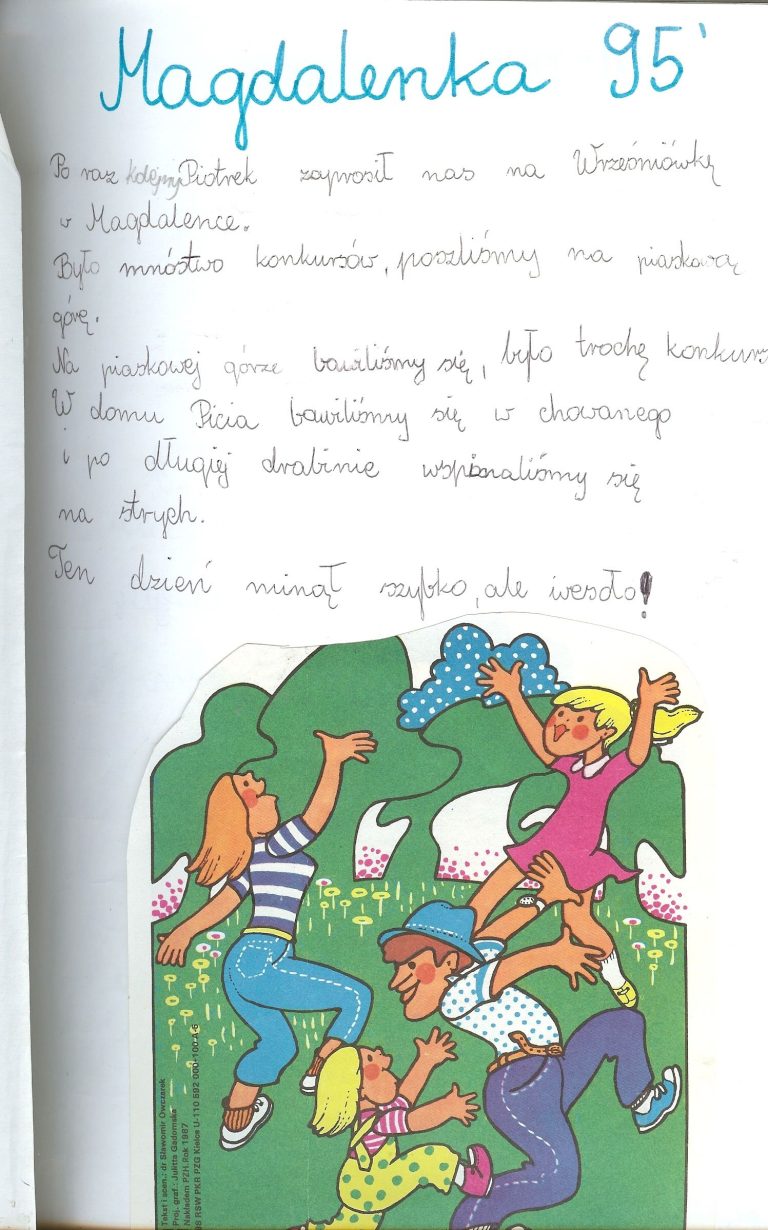 Magdalenka 95'
Po raz kolejny Piotrek zaprosił nas na Wrześniówkę
w Magdalence.
Było mnóstwo konkursów, poszliśmy na piaskową
górę.
Na piaskowej górze bawiliśmy się, było trochę konkurs
W domu Picia bawiliśmy się w chowanego
i po długiej drabinie wspinaliśmy się
na strych.
Ten dzień minął szybko, ale wesoło!
Tekst i scen.: dr Sławomir Owczarek
Proj. graf.: Julitta Gadomska
Nakładem PZH Rok 1987
RSW PKR PZG Kielce U-110 592 000-100-A-5